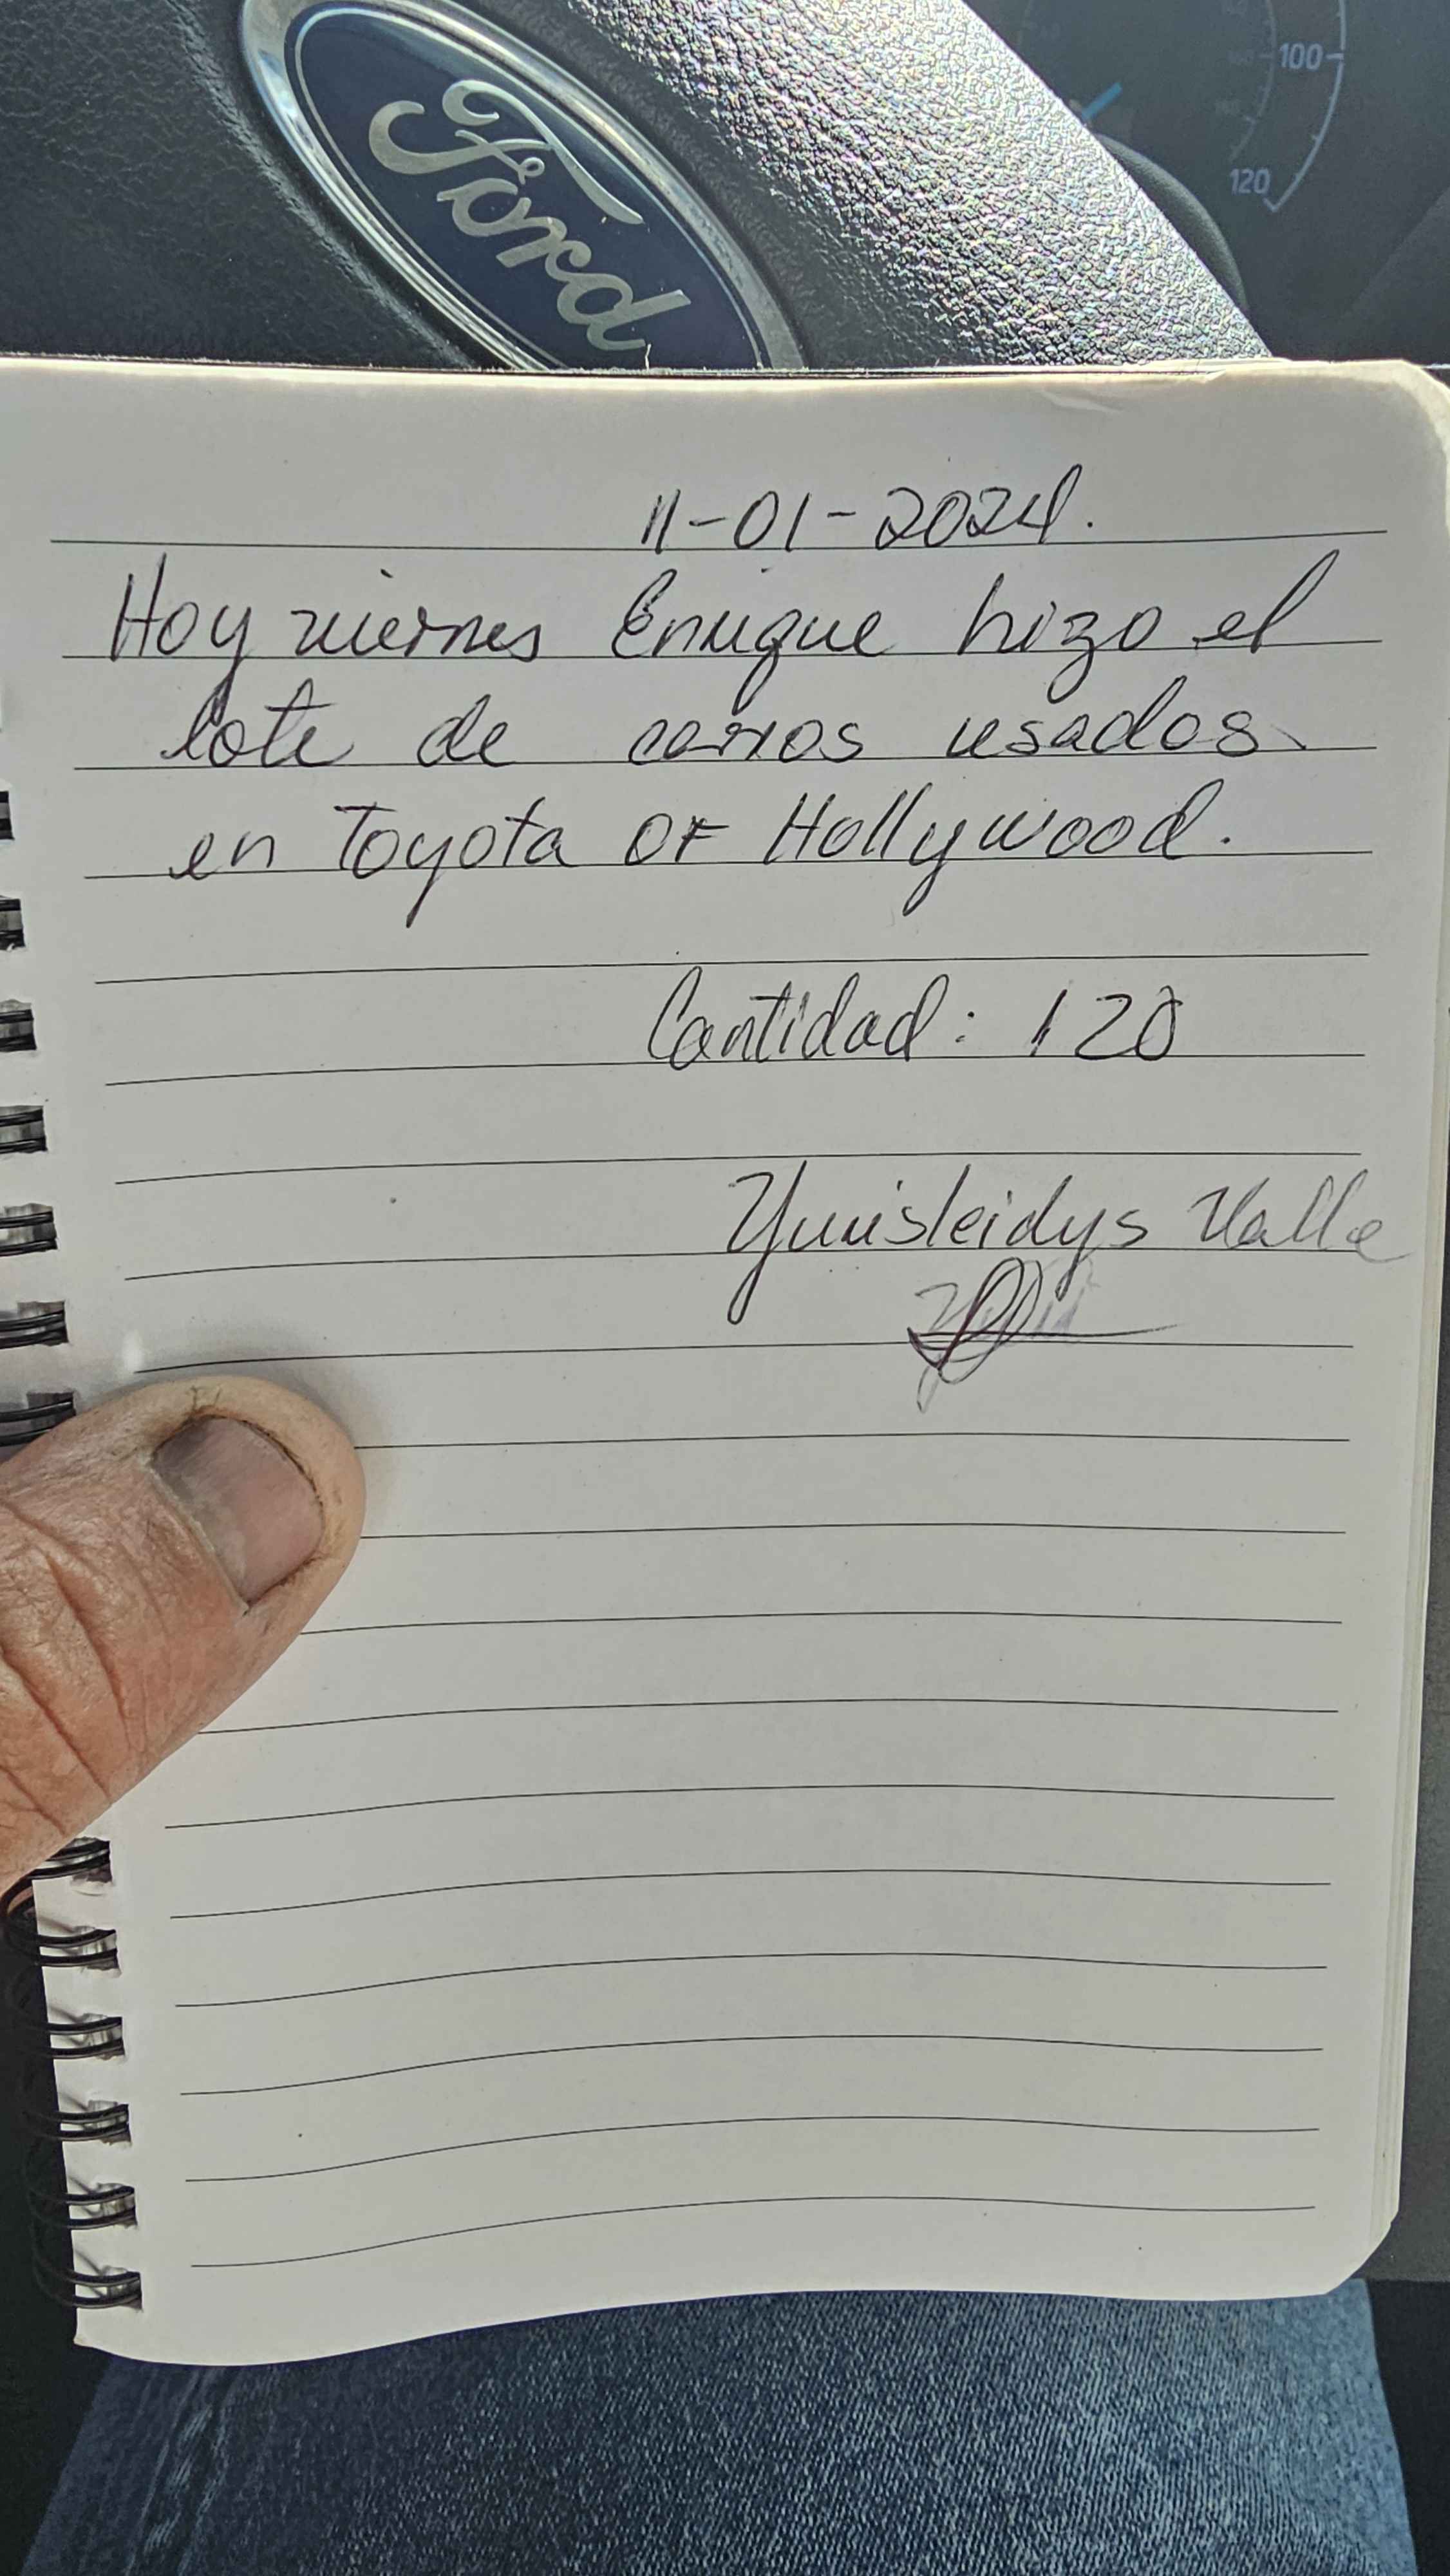 Ford
100
120
11-01-2024.
Hoy viernes Enrique hizo el
lote de carros usados
en Toyota OF Hollywood.
Cantidad: 120
Yunisleidys Valle